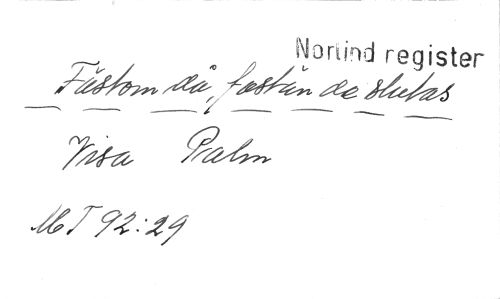 Norlind register
Fästom då, fastän de slutas
Visa Palm
MT 92:29